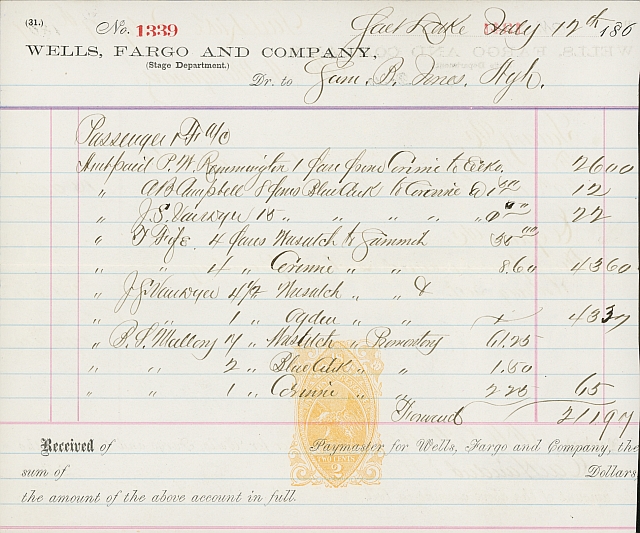 (31.) No. 1339 Salt Lake July 12th 186
WELLS, FARGO AND COMPANY,
(Stage Department.)
Dr. to Sam. B. Jones. Agt.
Passenger a/c
Amt paid P. W. Remmington 1 fare from Corinne to 2600
" A B Campbell 8 fares Blue Creek to Corinne 12
" J. S. Vanwyer 15 " " " " 22
" T Fife 4 fares Wasatch to Summit 35 00
" " 4 " Corinne " " 8.60 4360
" J. S. Vanwyer 4 1/2 Wasatch " " &
" " 1 " Ogden " " 4337
" R. S. Mallory 7 " Wasatch " Promontory 61.25
" " 2 " Blue Creek " " 1.50
" " 1 " Corinne " " 2 25 65
Forward 21197
Received of Paymaster for Wells, Fargo and Company, the
sum of Dollars
the amount of the above account in full.
TWO CENTS
2